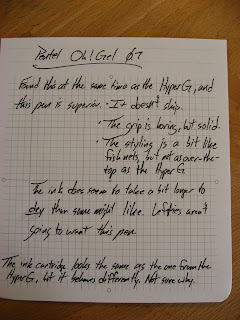 Pentel Oh! Gel 07
Found this at the same time as the HyperG, and
this pen is superior. · It doesn't skip.
· The grip is boring, but solid.
· The styling is a bit like
fishnets, but not as over-the-
top as the HyperG
The ink does seem to take a bit longer to
dry than some might like. Lefties aren't
going to want this pen.
The ink cartridge looks the same as the one from the
HyperG, but it behaves differently. Not sure why.